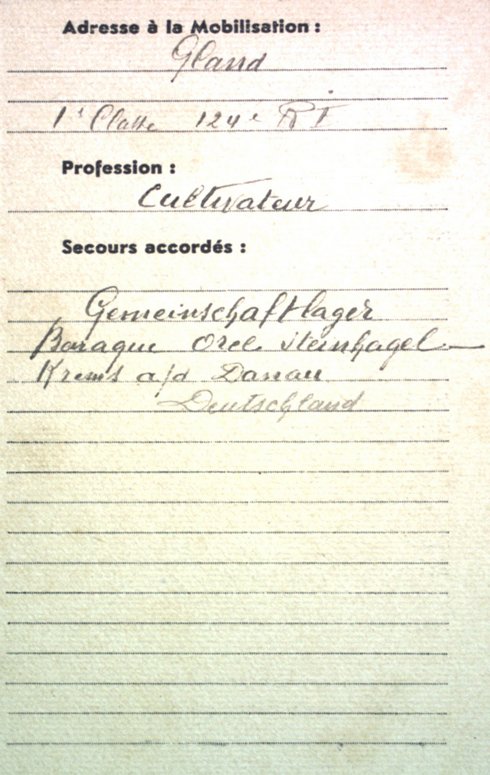 Adresse à la Mobilisation :
Gland
1e Classe 124e RI
Profession :
Cultivateur
Secours accordés :
Gemeinschaftlager
Baraque Steinhagel
Krems a/d Danau
Deutschland